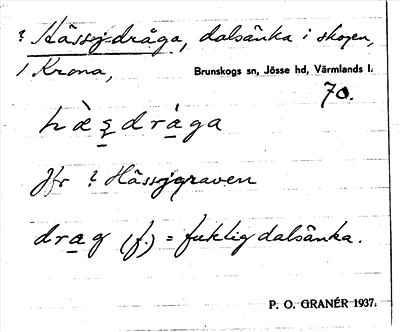 ? Hässjdråga, dalsänka i skogen,
1 Krona,
Brunskogs sn, Jösse hd, Värmlands l.
70.
Jfr ? Hässjgraven
drag (f.) = fuktig dalsänka.
P. O. GRANÉR 1937.